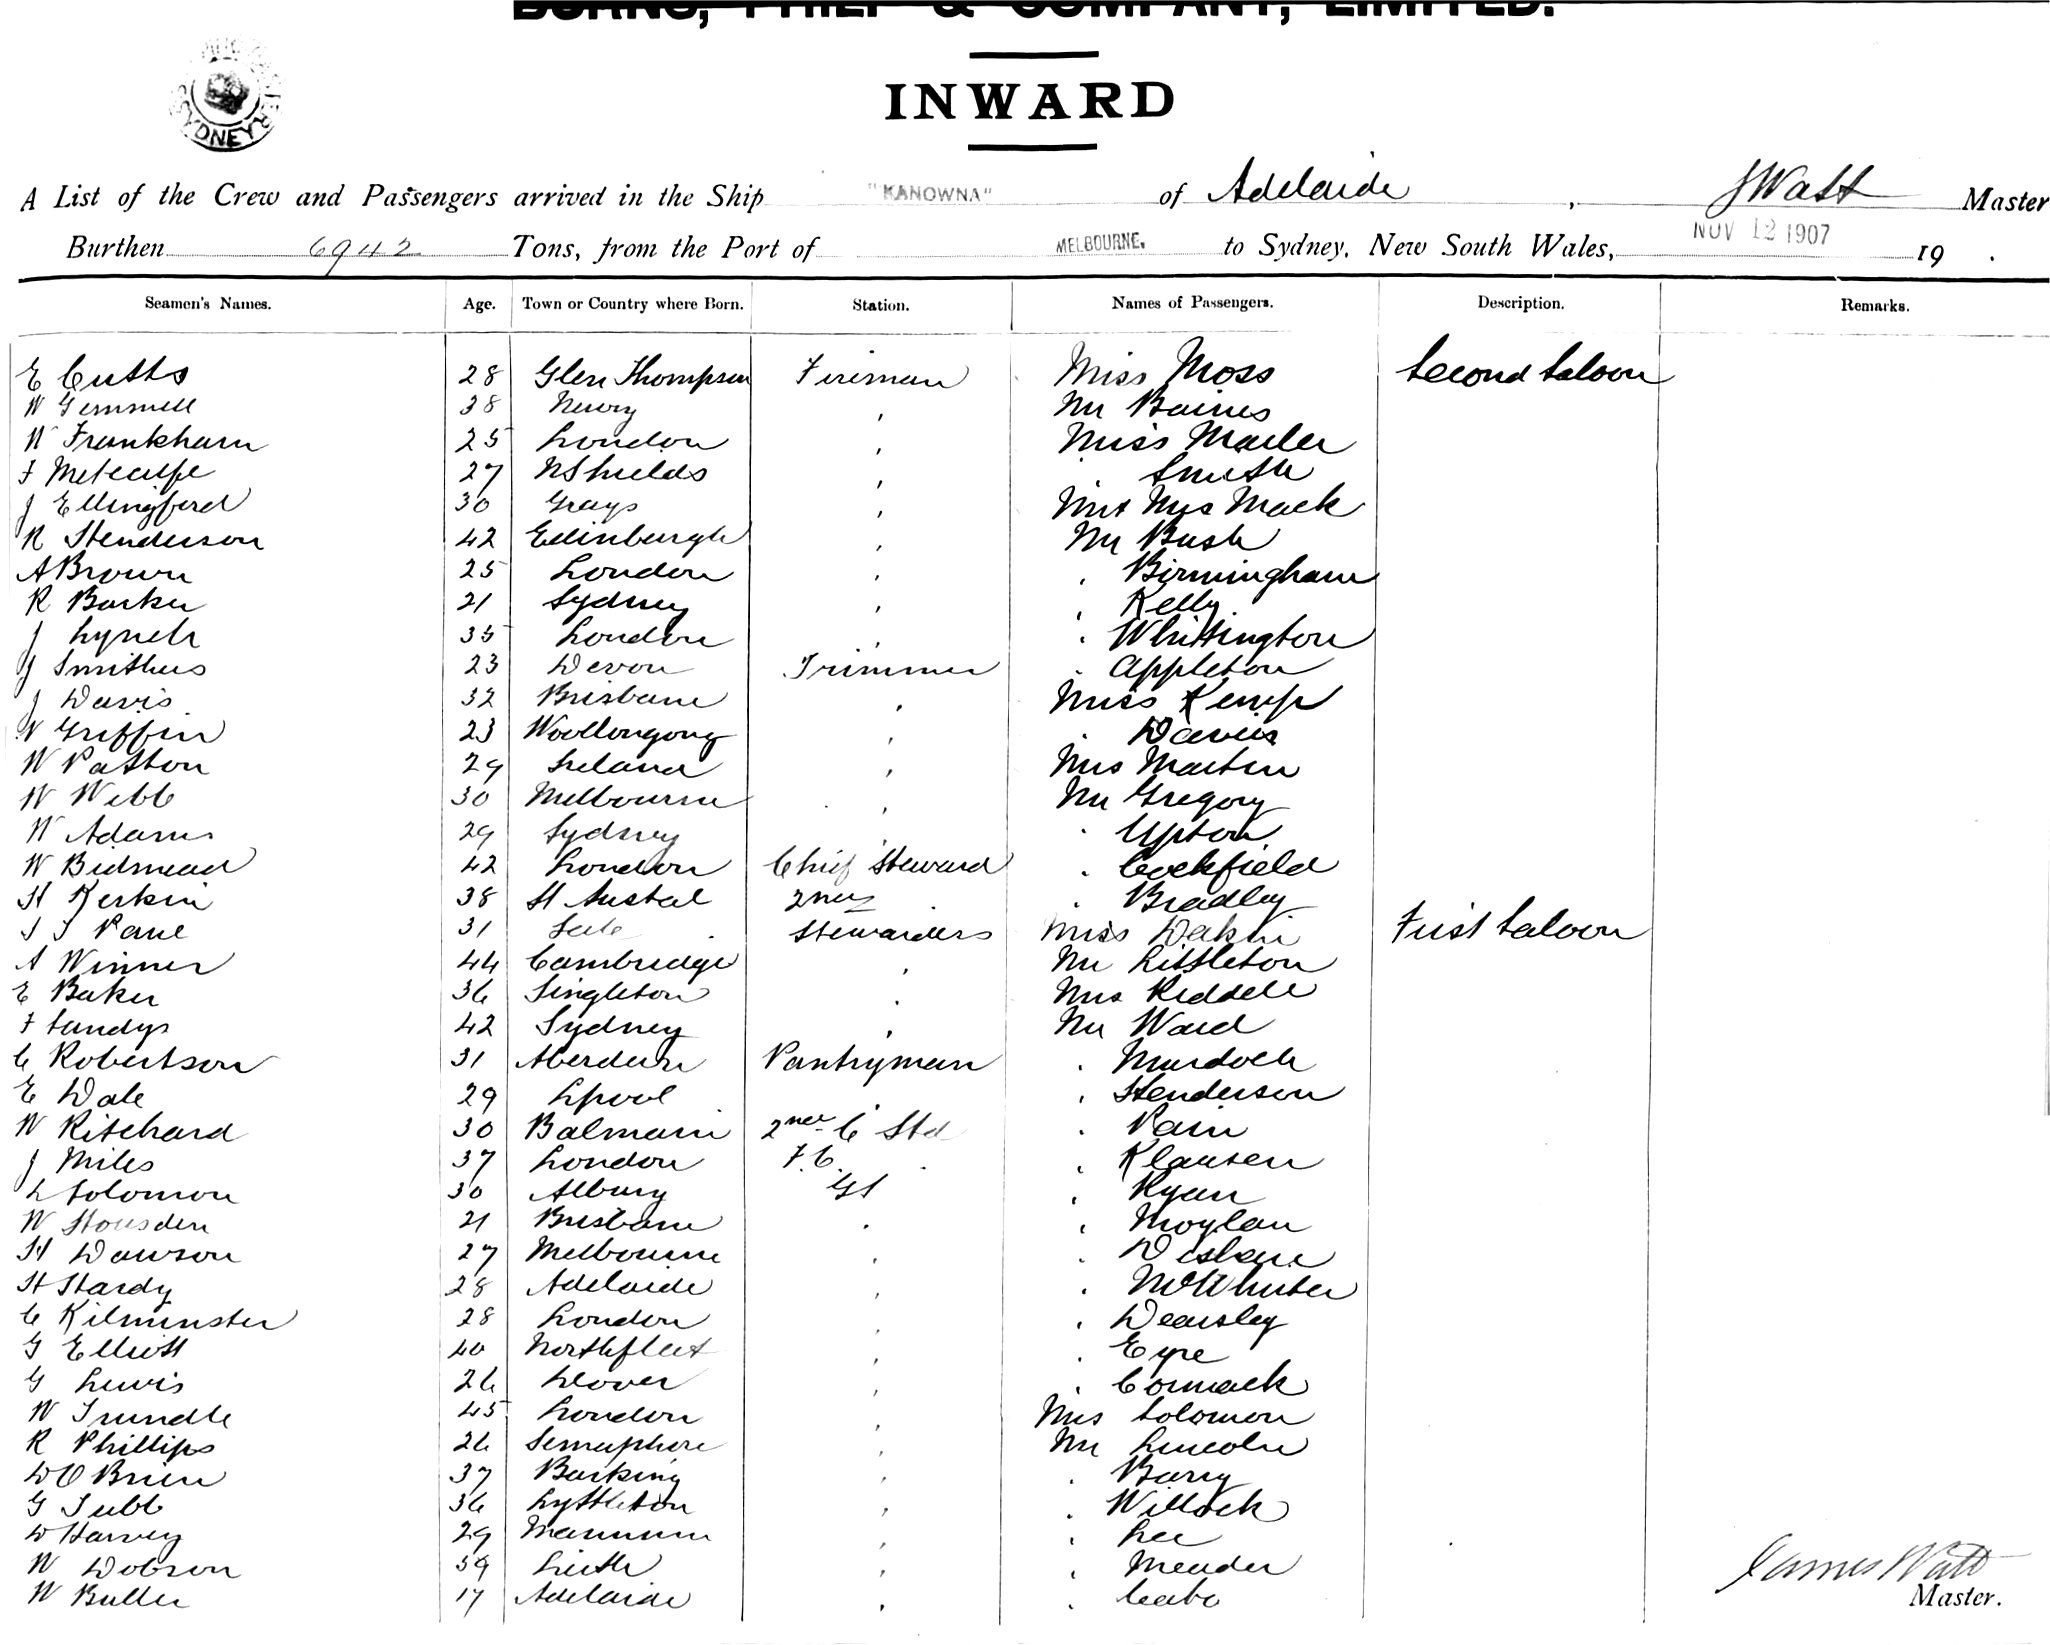 BURNS, PHILP & COMPANY, LIMITED.
INWARD
SYDNEY
A List of the Crew and Passengers arrived in the Ship "KANOWNA" of Adelaide, J Watt Master
Burthen 6942 Tons, from the Port of MELBOURNE. to Sydney, New South Wales, NOV 12 1907 19 .
Seamen's Names. Age. Town or Country where Born. Station. Names of Passengers. Description. Remarks.
E Cutts 28 Glen Thompson Fireman Miss Moss Second Saloon
W Gemmell 38 Newry " Mr Baines
W Frankham 25 London " Miss Marler
F Metcalfe 27 N Shields " " Smith
J Ellingford 30 Grays " Mr & Mrs Mack
R Henderson 42 Edinburgh " Mr Bush
A Brown 25 London " " Birmingham
R Barker 21 Sydney " " Kelly
J Lynch 35 London " " Whittington
J Smithers 23 Devon Trimmer " Appleton
J Davis 32 Brisbane " Miss Kemp
W Griffin 23 Woollongong " " Davies
W Patton 29 Ireland " Mrs Martin
W Webb 30 Melbourne " Mr Gregory
W Adams 29 Sydney " " Upton
W Bidmead 42 London Chief Steward " Cockfield
H Kerkin 38 St Austal 2nd " Bradley
S J Pane 31 Sale Stewardess Miss Dakin First Saloon
A Winner 44 Cambridge " Mr Littleton
E Baker 36 Singleton " Mrs Riddell
F Sandys 42 Sydney " Mr Ward
C Robertson 31 Aberdeen Pantryman " Murdoch
E Dale 29 Lpool " " Henderson
W Ritchard 30 Balmain 2nd C Std " Pain
J Miles 37 London F.C. " " Klausen
L Solomon 30 Albury GS " Ryan
W Housden 21 Brisbane " " Moylan
H Dawson 27 Melbourne " "
H Hardy 28 Adelaide " " McWhirter
C Kilminster 28 London " " Dearsley
G Elliott 40 Northfleet " " Eyre
G Lewis 26 Dover " " Cormack
W Trundle 45 London " Mrs Solomon
R Phillips 26 Semaphore " Mr Lincoln
D O'Brien 37 Barking " " Barry
G Tubb 36 Lyttleton " " Willock
D Harvey 29 Mannum " " Lee
W Dobson 39 Leith " " Meader
W Buller 17 Adelaide " "
James Watt
Master.